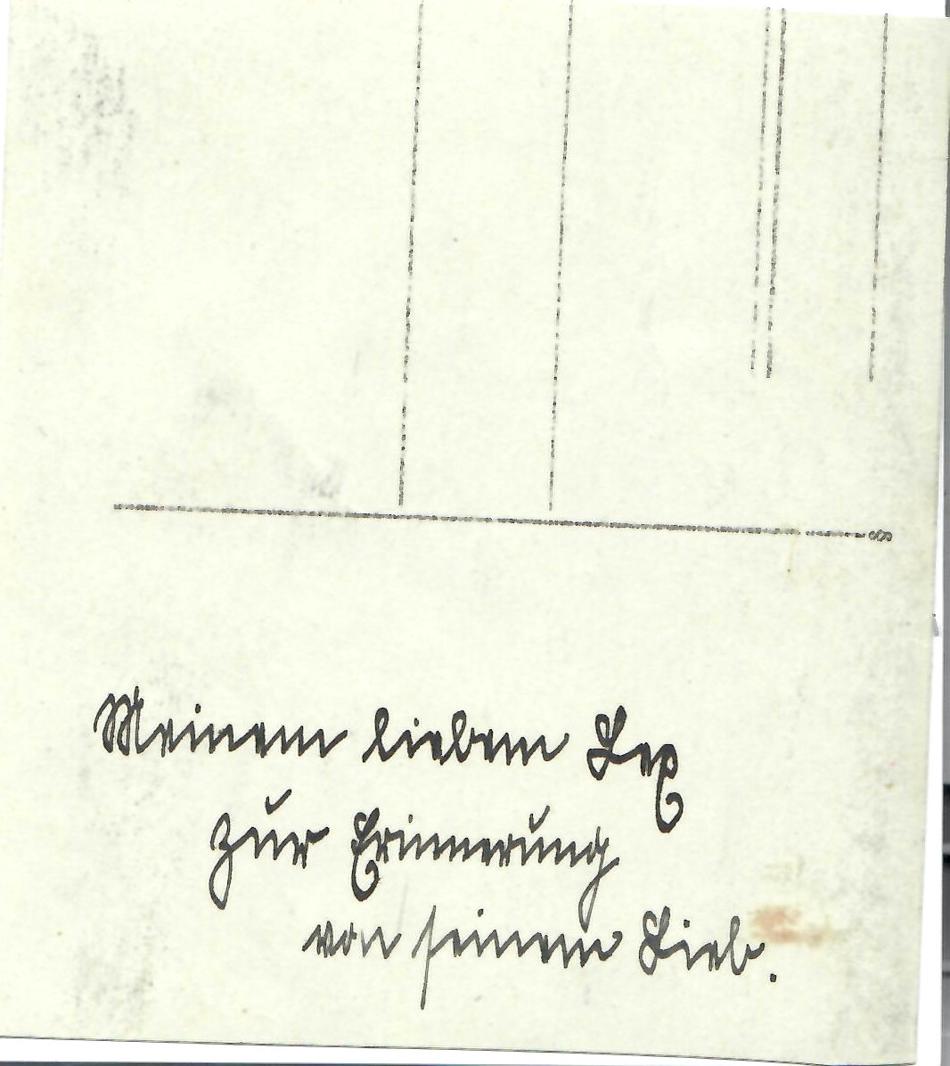 Meinem lieben Lex
zur Erinnerung
von seinem Lieb.